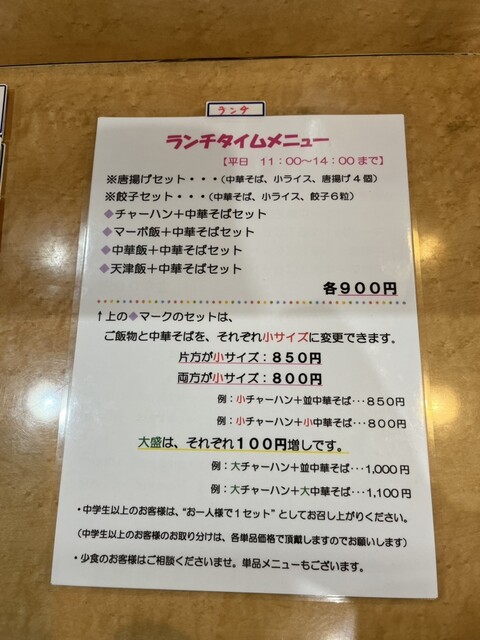 ランチ
ランチタイムメニュー
【平日 11：00～14：00まで】
※唐揚げセット・・・（中華そば、小ライス、唐揚げ４個）
※餃子セット・・・（中華そば、小ライス、餃子６粒）
◆チャーハン＋中華そばセット
◆マーボ飯＋中華そばセット
◆中華飯＋中華そばセット
◆天津飯＋中華そばセット
各９００円
↑上の◆マークのセットは、
ご飯物と中華そばを、それぞれ小サイズに変更できます。
片方が小サイズ：８５０円
両方が小サイズ：８００円
例：小チャーハン＋並中華そば･･･８５０円
例：小チャーハン＋小中華そば･･･８００円
大盛は、それぞれ１００円増しです。
例：大チャーハン＋並中華そば･･･1,000円
例：大チャーハン＋大中華そば･･･1,100円
・中学生以上のお客様は、“お一人様で１セット”としてお召し上がりください。
（中学生以上のお客様のお取り分けは、各単品価格で頂戴しますのでお願いします）
・少食のお客様はご相談くださいませ。単品メニューもございます。